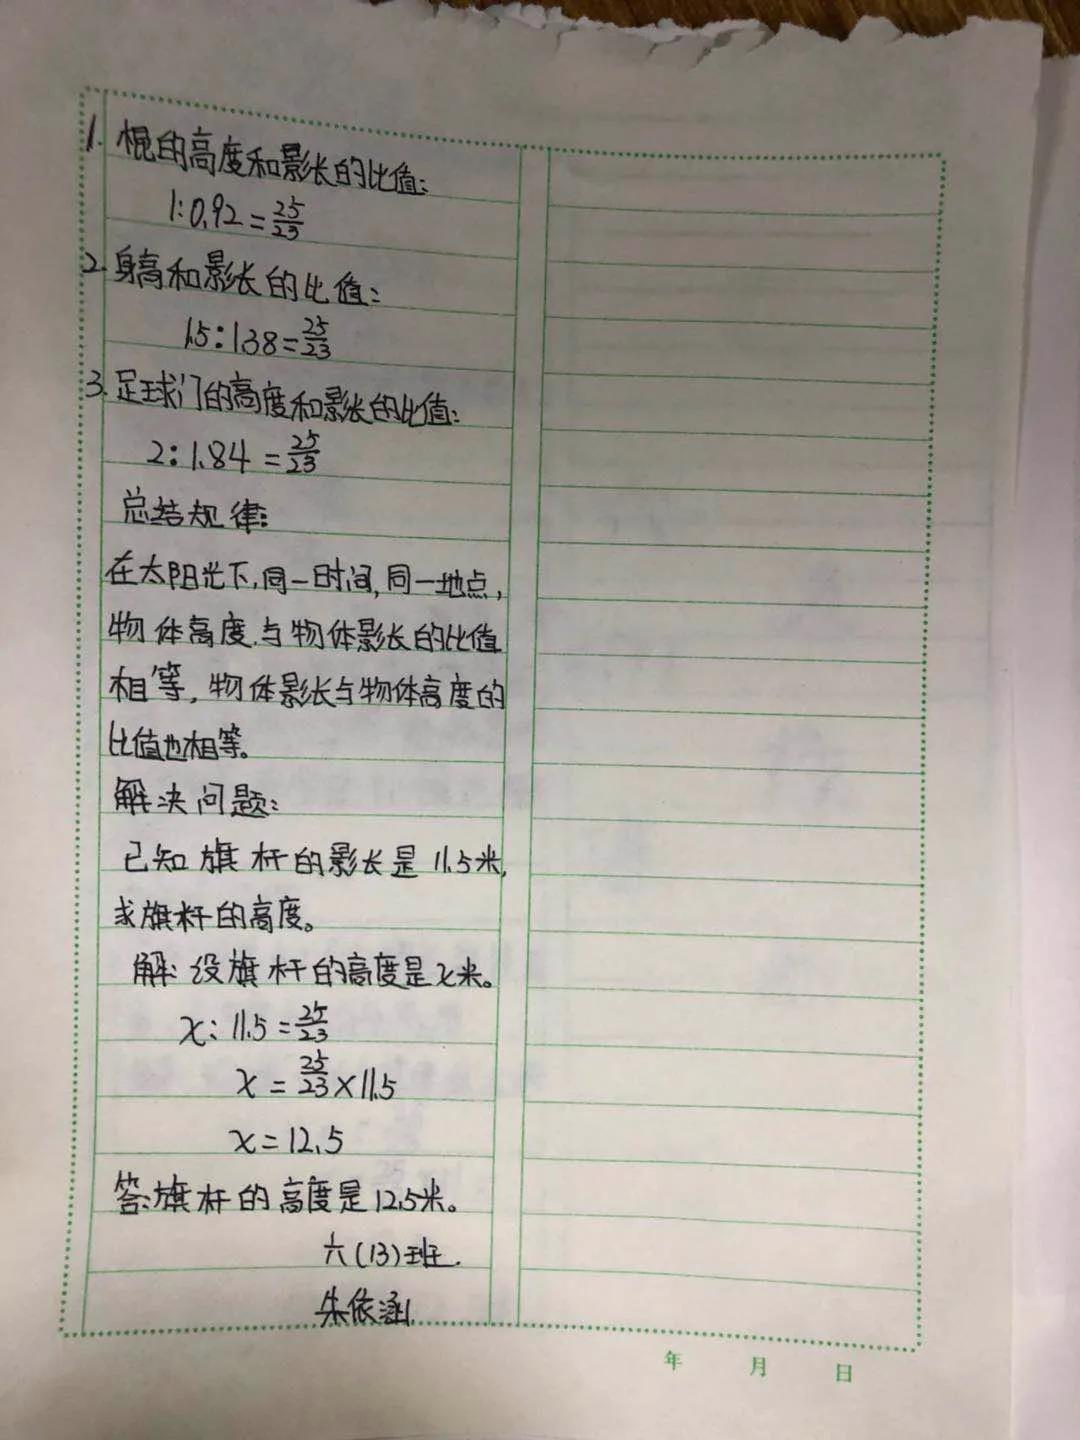 1. 棍的高度和影长的比值:
1:0.92=25/23
2.身高和影长的比值:
1.5:1.38=25/23
3.足球门的高度和影长的比值:
2:1.84=25/23
总结规律:
在太阳光下,同一时间,同一地点,
物体高度与物体影长的比值
相等,物体影长与物体高度的
比值也相等。
解决问题:
已知旗杆的影长是11.5米,
求旗杆的高度。
解:设旗杆的高度是x米。
x:11.5=25/23
x=25/23×11.5
x=12.5
答:旗杆的高度是12.5米。
六(13)班.
朱依涵
年 月 日